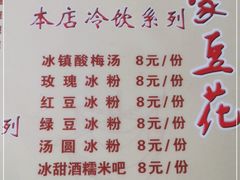 本店冷饮系列
冰镇酸梅汤 8元/份
玫瑰冰粉 8元/份
红豆冰粉 8元/份
绿豆冰粉 8元/份
汤圆冰粉 8元/份
冰甜酒糯米吧 8元/份
家豆花
列